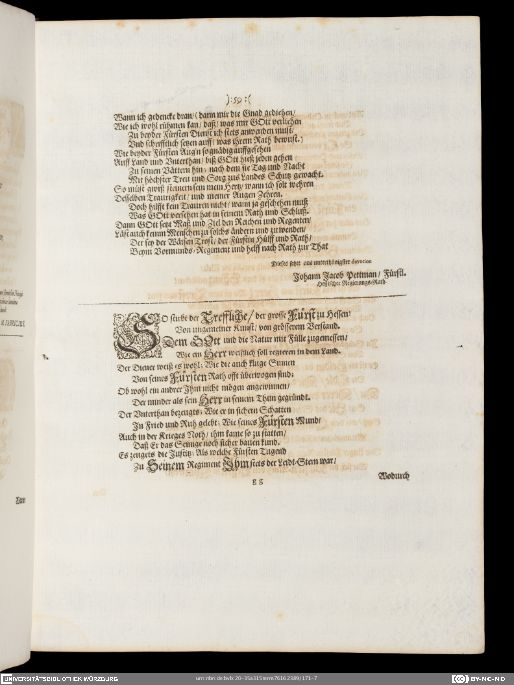 ):59:(
Wann ich gedencke dran / darin mir die Gnad gediehen /
Wie ich wohl rühmen kan / daß / was mir GOtt verliehen
Zu beyder Fürsten Dienst ich stets anwenden müst /
Und schrifftlich setzen auff / was ihrem Rath bewust.)
Wie beyder Fürsten Augn so gnädig auffgesehen
Auff Land und Unterthan / biß GOtt hieß jeden gehen
Zu seinen Vättern hin / nach dem sie Tag und Nacht
Mit höchster Treu und Sorg zus Landes Schutz gewacht.
So müst groß steinern sein mein Hertz / wann ich solt wehren
Desselben Traurigkeit / und meiner Augen Zehren.
Doch hilfft kein Trauren nicht / wann ja geschehen muß
Was GOtt versehen hat in seinem Rath und Schluß.
Dann GOtt setzt Maß und Ziel den Reichen und Regenten /
Läst auch keinm Menschen zu solchs ändern und zu wenden /
Der sey der Wäisen Trost / der Fürstin Hülff und Rath /
Beym Vormunds-Regiment und helff nach Rath zur That
Dieses setzt aus unterthänigster devotion
Johann Jacob Pettman / Fürstl.
Hessischer Regierungs-Rath
SO stirbt der Treffliche / der grosse Fürst zu Hessen /
Von ungemeiner Kunst / von grösserem Verstand.
Dem GOtt und die Natur mit Fülle zugemessen /
Wie ein Herr weißlich soll regieren in dem Land.
Der Diener weiß es wohl: Wie die auch kluge Sinnen
Von seines Fürsten Rath offt überwogen sind:
Ob wohl ein andrer Ihm nicht mögen angewinnen /
Der minder als sein Herr in seinem Thun gegründt.
Der Unterthan bezeugts: Wie er in sichern Schatten
In Fried und Ruh gelebt: Wie seines Fürsten Mund /
Auch in der Krieges Noth / ihm kame so zu statten /
Daß Er das Seinige noch sicher bauen kund.
Es zeugets die Justitz: Als welche Fürsten Tugend
Zu Seinem Regiment Ihm stets der Leidt-Stern war /
gg
Wodurch
UNIVERSITÄTSBIBLIOTHEK WÜRZBURG
BY-NC-ND